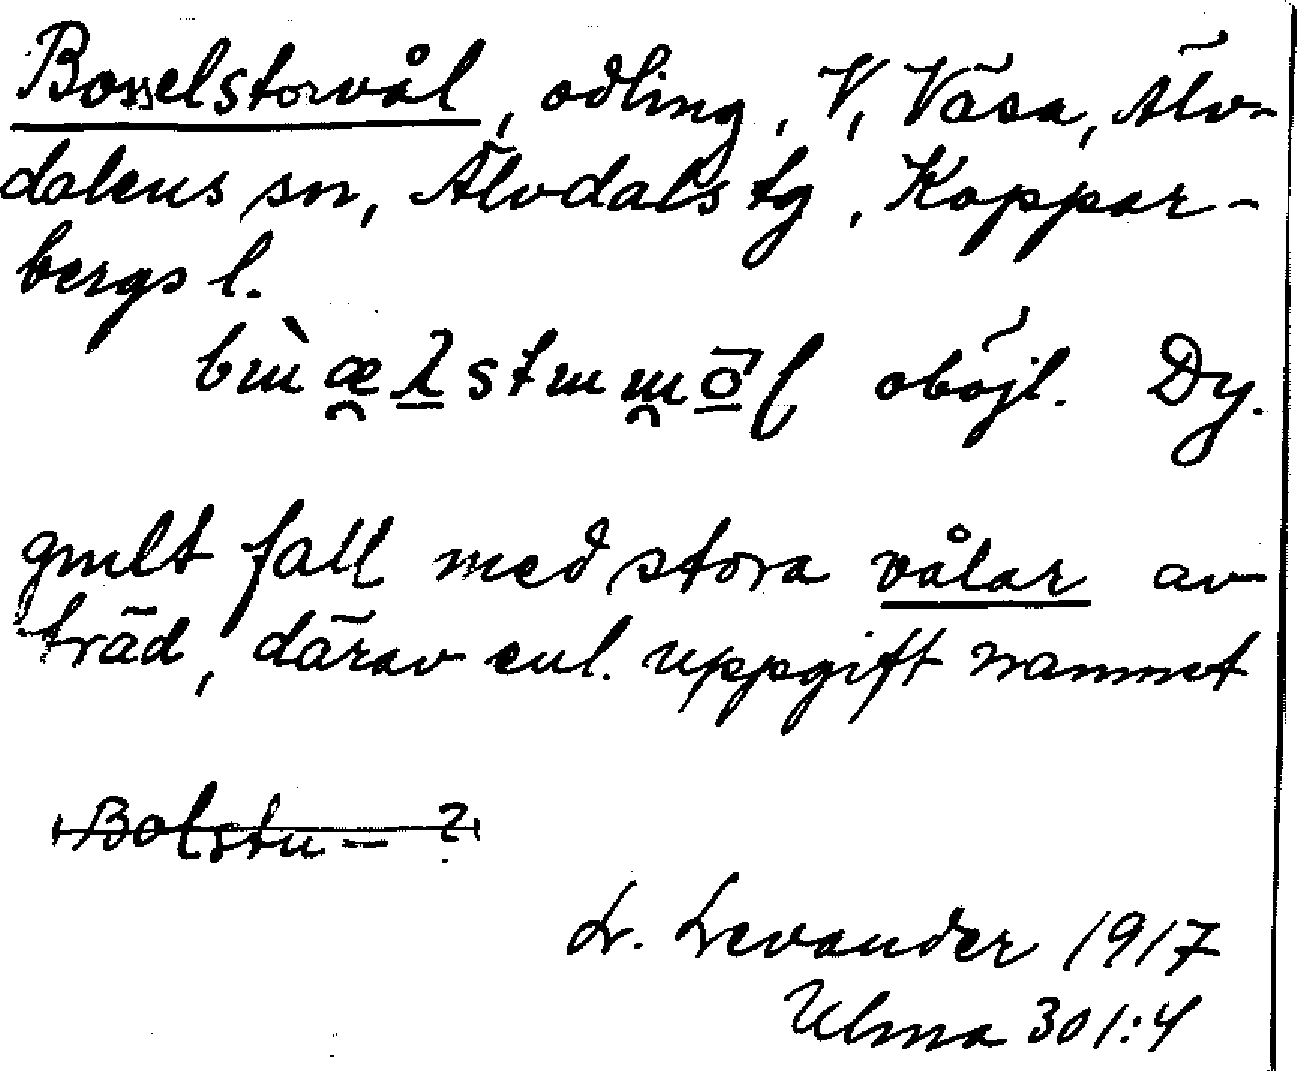 Bosselstorvål, odling, V, Väsa, Älv-
dalens sn, Älvdals tg, Koppar-
bergs l.
oböjl. Dy.
gmlt fall med stora vålar av
träd, därav enl. uppgift namnet
Bolstu - ?
L. Levander 1917
Ulma 301:4